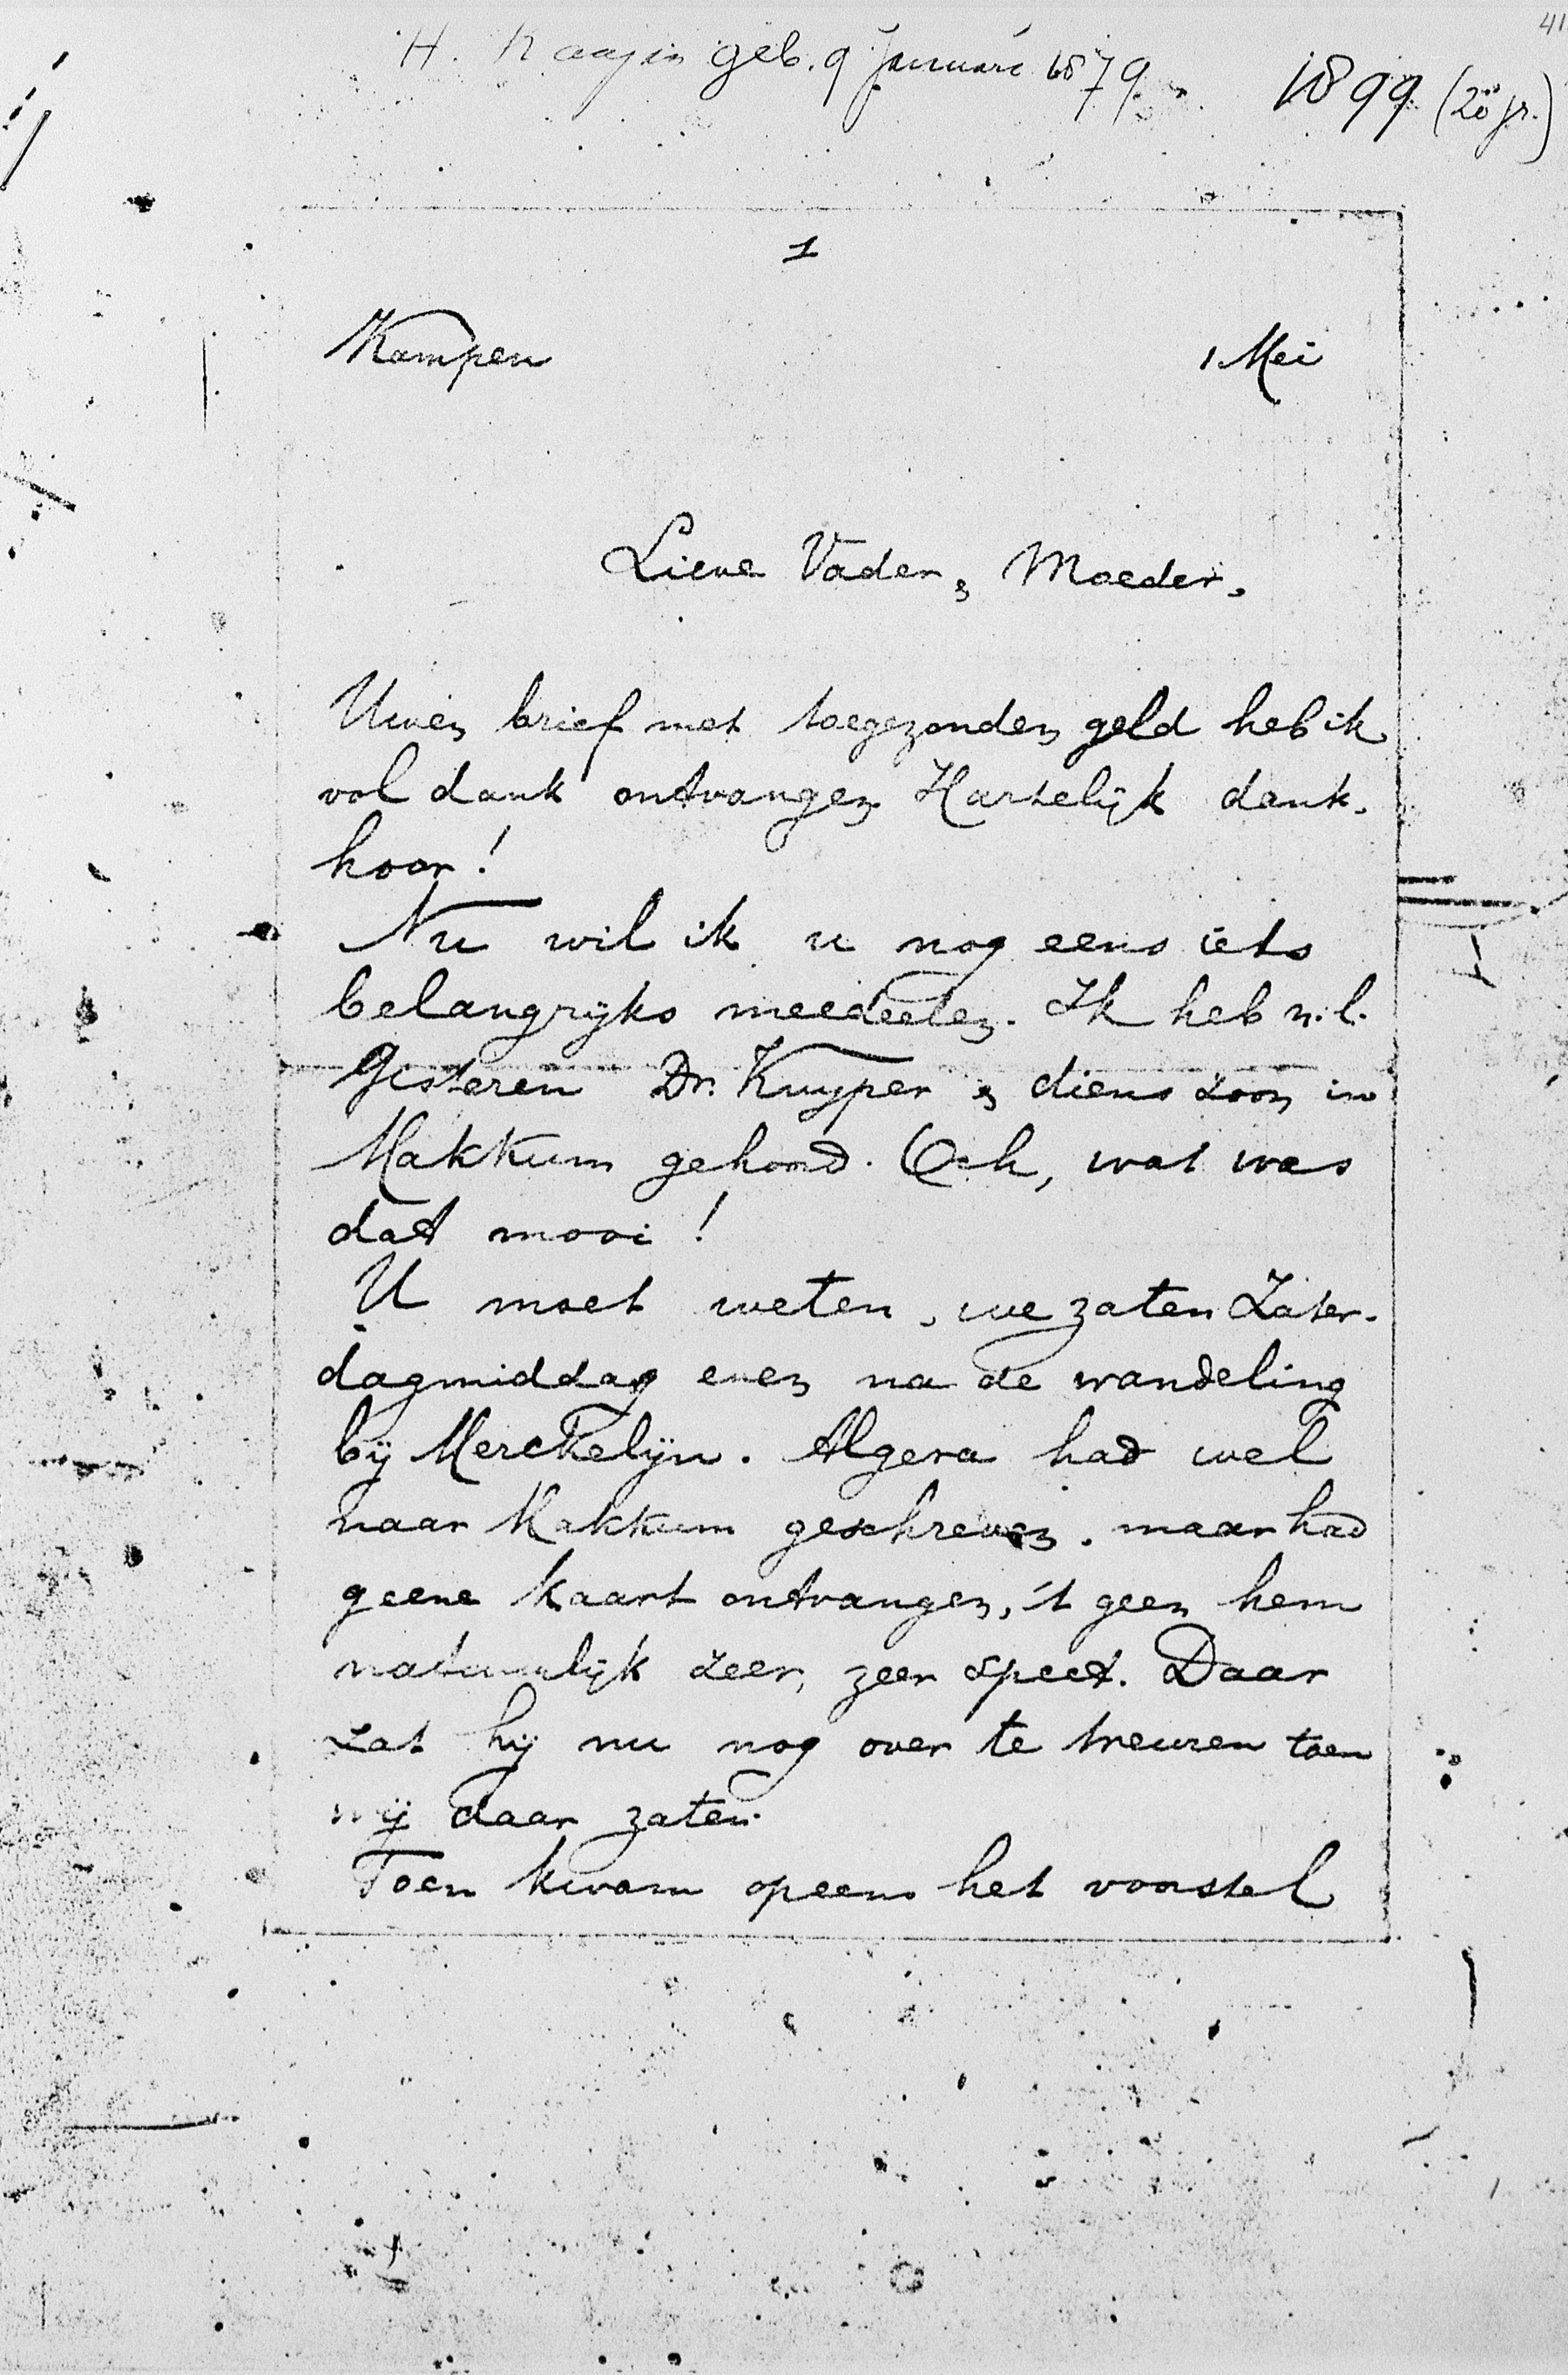 41
H. Kaajan geb. 9 Januari 1879. 1899 (20 jr.)
1
Kampen 1 Mei
Lieve Vader & Moeder,
Uwen brief met toegezonden geld heb ik
vol dank ontvangen Hartelijk dank.
hoor!
Nu wil ik u nog eens iets
belangrijks meedeelen. Ik heb n.l.
Gisteren Dr. Kuyper & diens zoon in
Makkum gehoord. Och, wat was
dat mooi!
U moet weten, we zaten Zater-
dagmiddag even na de wandeling
bij Merckelijn. Algera had wel
naar Makkum geschreven, maar had
geene kaart ontvangen, 't geen hem
natuurlijk zeer, zeer speet. Daar
zat hij nu nog over te treuren toen
wij daar zaten.
Toen kwam opeens het voorstel